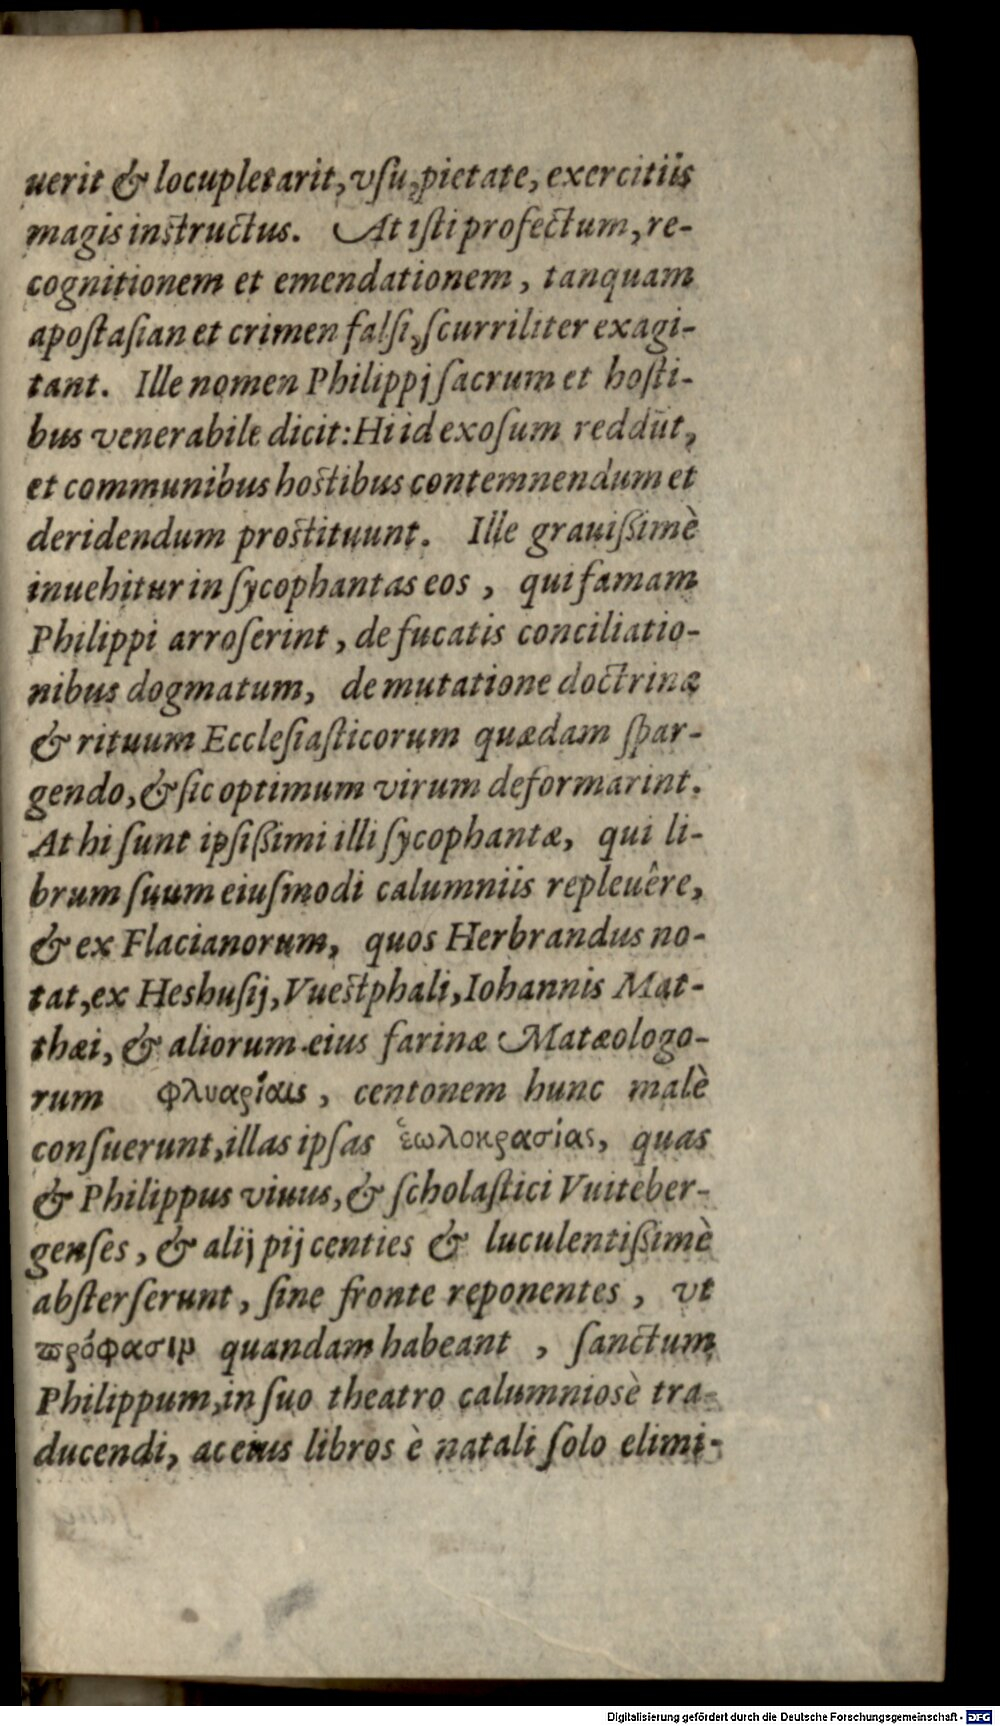 uerit & locupletarit, vſu, pietate, exercitiis
magis instructus. At iſti profectum, re-
cognitionem et emendationem, tanquam
apoſtaſian et crimen falſi, ſcurriliter exagi-
tant. Ille nomen Philippj ſacrum et hoſti-
bus venerabile dicit: Hi id exoſum reddūt,
et communibus hostibus contemnendum et
deridendum prostituunt. Ille grauiſſimè
inuehitur in ſycophantas eos, qui famam
Philippi arroſerint, de fucatis conciliatio-
nibus dogmatum, de mutatione doctrinæ
& rituum Eccleſiaſticorum quædam ſpar-
gendo, & ſic optimum virum deformarint.
At hi ſunt ipſiſſimi illi ſycophantæ, qui li-
brum ſuum eiuſmodi calumniis repleuêre,
& ex Flacianorum, quos Herbrandus no-
tat, ex Heshuſij, Vuestphali, Iohannis Mat-
thæi, & aliorum eius farinæ Matæologo-
rum φλυαρίαις, centonem hunc malè
conſuerunt, illas ipſas ἑωλοκρασίας, quas
& Philippus viuus, & ſcholaſtici Vuiteber-
genſes, & alij pij centies & luculentiſſimè
abſterſerunt, ſine fronte reponentes, vt
πρόφασιν quandam habeant, ſanctum
Philippum, in ſuo theatro calumniosè tra-
ducendi, ac eius libros è natali ſolo elimi-
Digitalisierung gefördert durch die Deutsche Forschungsgemeinschaft - DFG